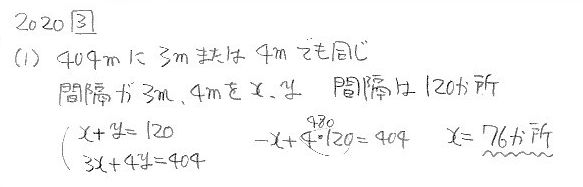 2020 3
(1) 404mに 3mまたは 4mでも同じ
間隔が3m、4mをx、y 間隔は120か所
x+y=120
3x+4y=404
480
-x+4・120=404
x=76か所